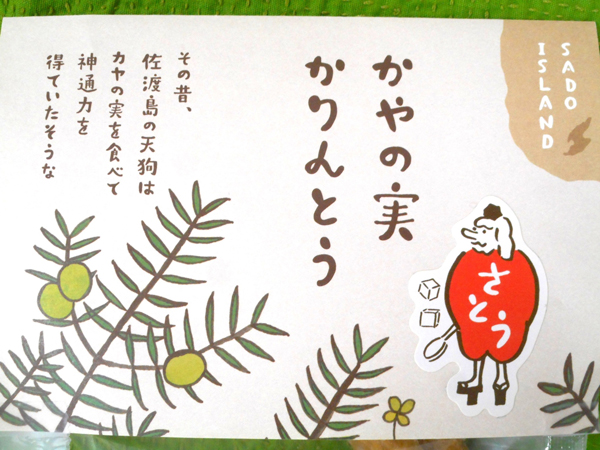 SADO
ISLAND
かやの実
かりんとう
その昔、
佐渡島の天狗は
カヤの実を食べて
神通力を
得ていたそうな
さとう